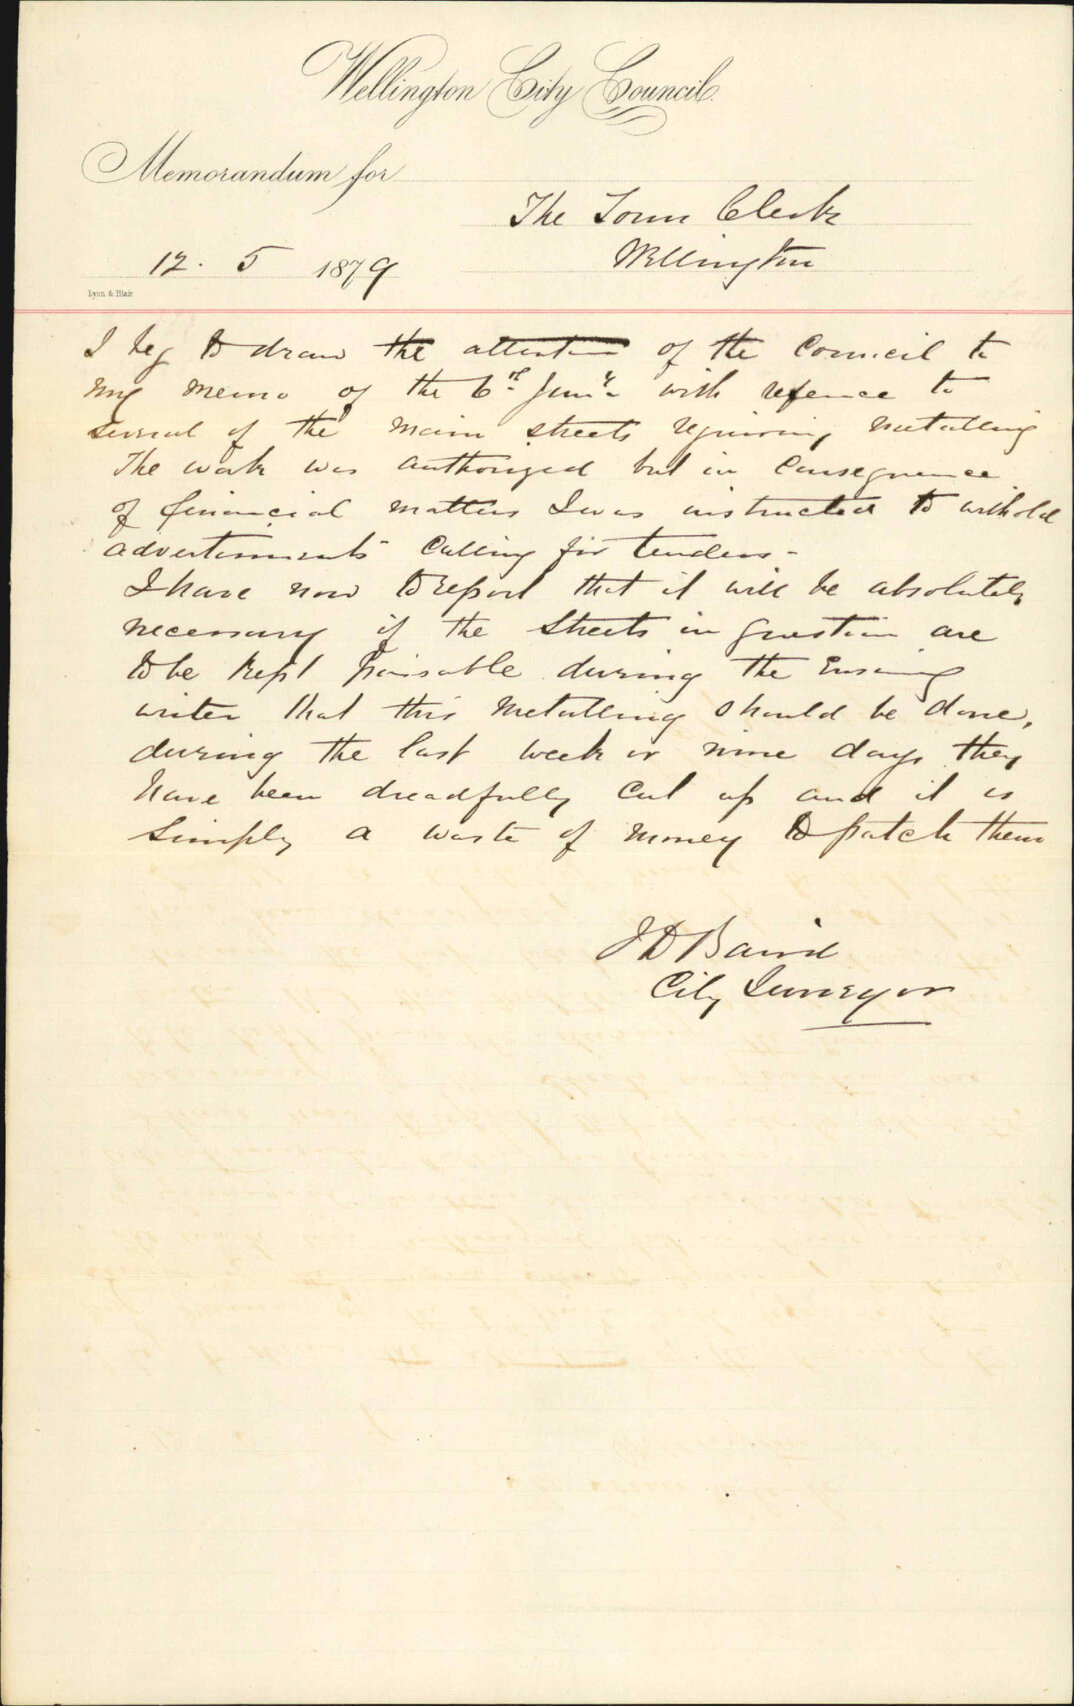 Wellington City Council.
Memorandum for
The Town Clerk
Wellington
12. 5 1879
Lyon & Blair
I beg to draw the attention of the Council to
my memo of the 6th with refence to
several of the main streets requiring metalling
The work was authorized but in consequence
of financial matters I was instructed to withold
advertisments calling for tenders -
I have now to report that it will be absolutely
necessary if the streets in question are
to be kept passable during the ensuing
winter that this metalling should be done,
during the last week or nine days they
have been dreadfully cut up and it is
simply a waste of money to patch them
J D Baird
City Surveyor